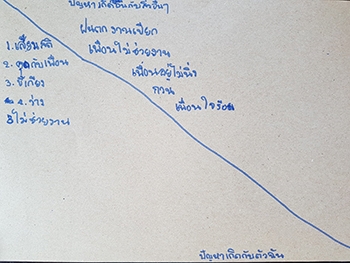 ปัญหาเกิดขึ้นกับสิ่งอื่นๆ
ฝนตก งานเปียก
เพื่อนไม่ช่วยงาน
เพื่อนอยู่ไม่นิ่ง
กวน
เพื่อนใจร้อน
1.
2. คุยกับเพื่อน
3. ขี้เกียจ
4. ว่าง
5 ไม่ช่วยงาน
ปัญหาเกิดกับตัวฉัน